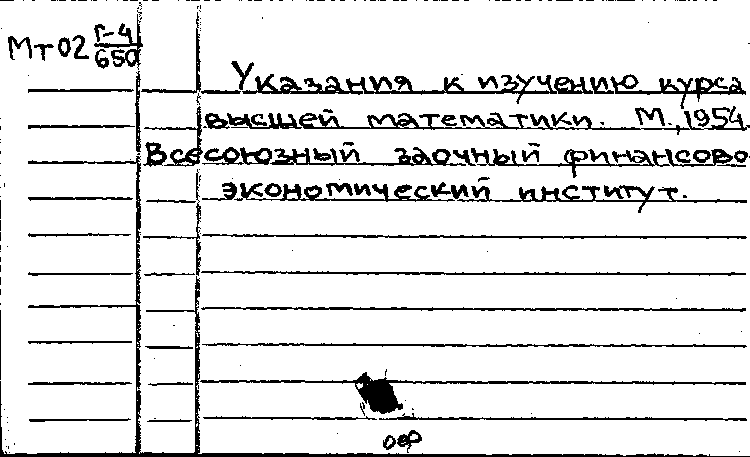 Мт02 Г-4/650
Указания к изучению курса
высшей математики. М., 1954.
Всесоюзный заочный финансово
экономический институт.